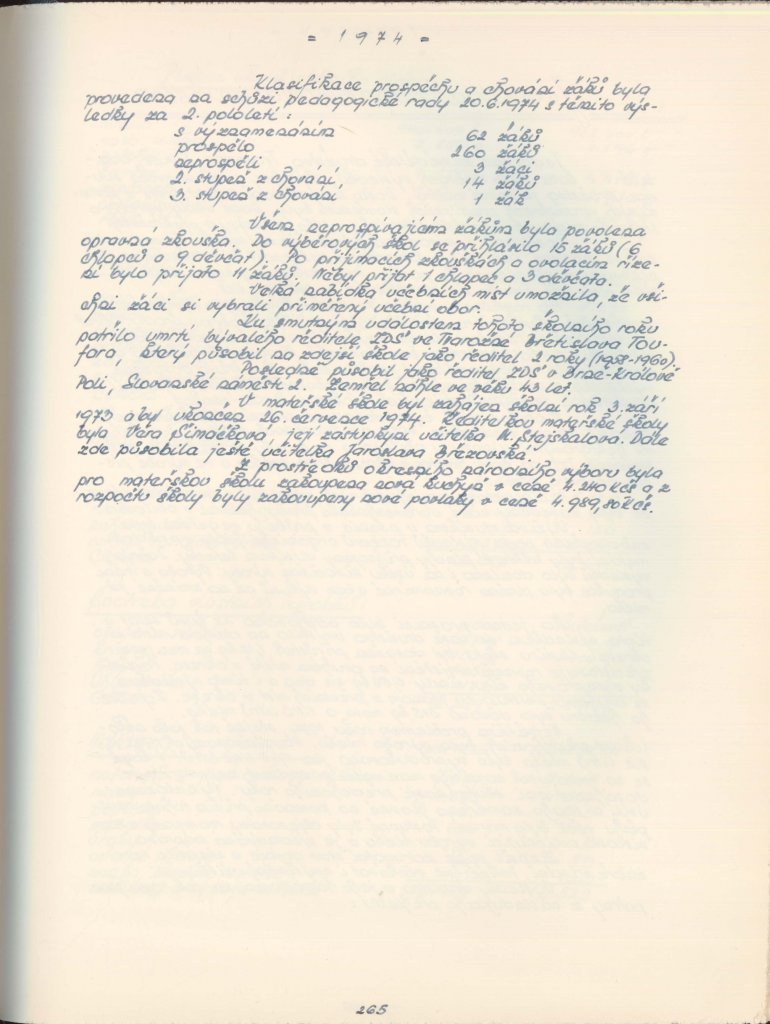 = 1974 =
Klasifikace prospěchu a chování žáků byla
provedena na schůzi pedagogické rady 20.6.1974 s těmito výs-
ledky za 2. pololetí :
s vyznamenáním 62 žáků
prospělo 260 žáků
neprospěli 3 žáci
2. stupeň z chování, 14 žáků
3. stupeň z chování 1 žák
Všem neprospívajícím žákům byla povolena
opravná zkouška. Do výběrových škol se přihlásilo 15 žáků (6
chlapců a 9 děvčat). Po přijímacích zkouškách a ovolacím říze-
ní bylo přijato 11 žáků. Nebyl přijat 1 chlapec a 3 děvčata.
Velká nabídka učebních míst umožnila, že vši-
chni žáci si vybrali přiměřený učební obor.
Ku smutným událostem tohoto školního roku
patřilo úmrtí bývalého ředitele ZDŠ ve Tvarožné Břetislava Tou-
fara, který působil na zdejší škole jako ředitel 2 roky (1958-1960).
Posledně působil jako ředitel ZDŠ v Brně-Králově
Poli, Slovanské náměstí 2. Zemřel náhle ve věku 43 let.
V mateřské škole byl zahájen školní rok 3. září
1973 a byl ukončen 26. července 1974. Ředitelkou mateřské školy
byla Věra Šimáčková, její zástupkyní učitelka M. Štejskalová. Dále
zde působila ještě učitelka Jaroslava Březovská.
Z prostředků okresního národního výboru byla
pro mateřskou školu zakoupena nová kuchyň v ceně 4.240 Kčs a z
rozpočtu školy byly zakoupeny nové povlaky v ceně 4.989,80 Kčs.
265